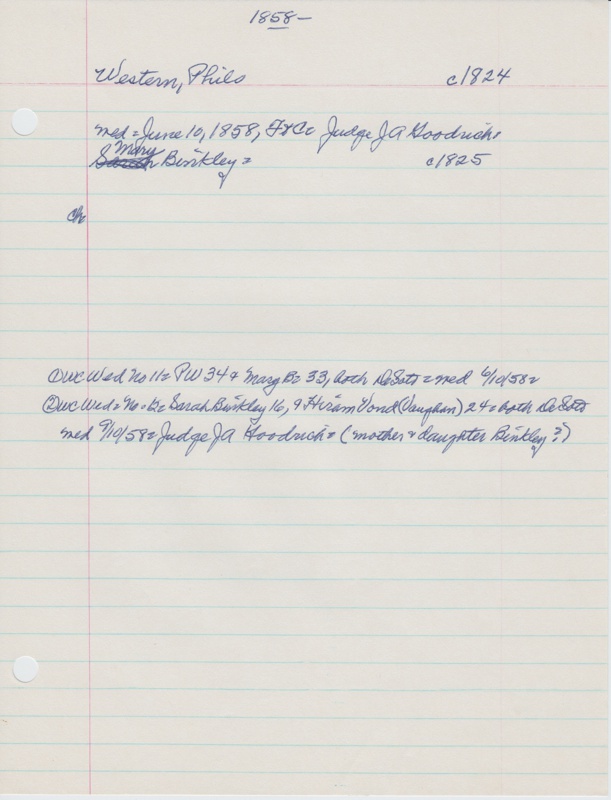 1858-
Western, Philo c1824
med = June 10, 1858, Judge J A Goodrich =
Mary
Sarah Binkley = c1825
ch
① WC Wed No 11 = PW 34 & Mary B = 33, both DeSoto = med 6/10/58 =
② WC Wed = No = Sarah Binkley 16, & Hiram Vond (Vaughan) 24 = both DeSoto
med 9/10/58 = Judge J A Goodrich = (mother & daughter Binkley?)